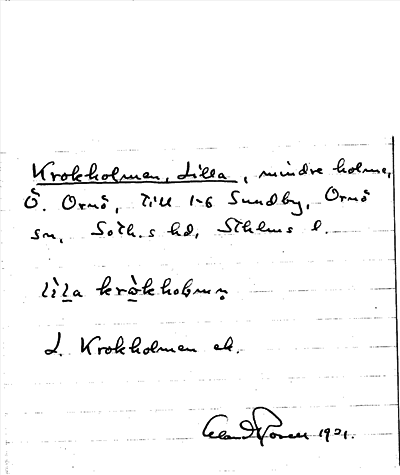 Krokholmen, Lilla, mindre holme,
Ö. Ornö, till 1-6 Sundby, Ornö
sn, Soth.s hd, Sthlms l.
lìla kròkholmen
L. Krokholmen ek.
1921.